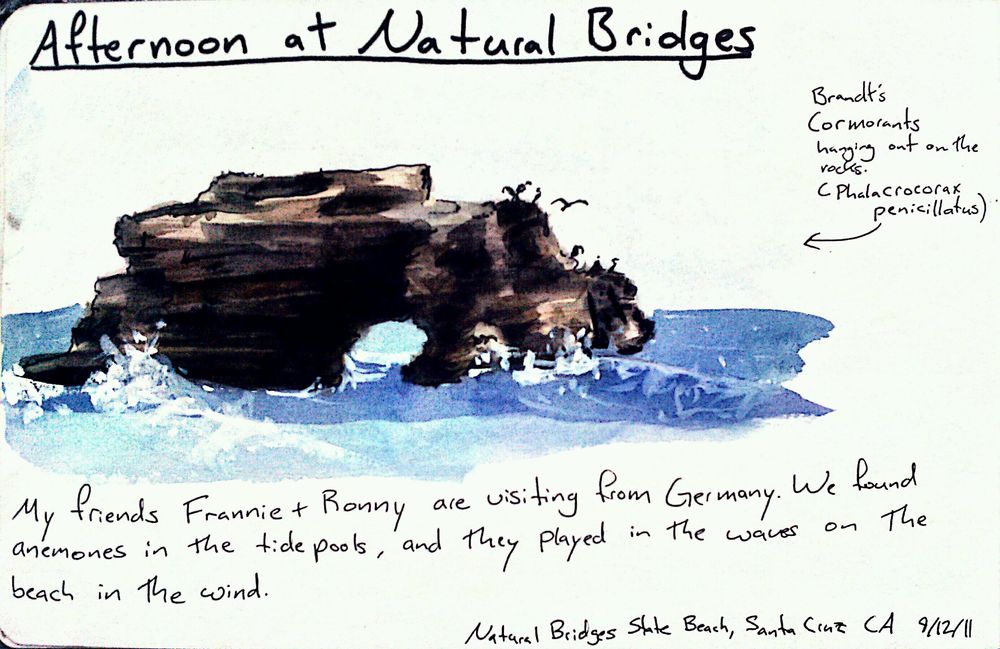 Afternoon at Natural Bridges
Brandt's
Cormorants
hanging out on the
rocks.
(Phalacrocorax
penicillatus)
My friends Frannie + Ronny are visiting from Germany. We found
anemones in the tide pools, and they played in the waves on the
beach in the wind.
Natural Bridges State Beach, Santa Cruz CA 9/12/11